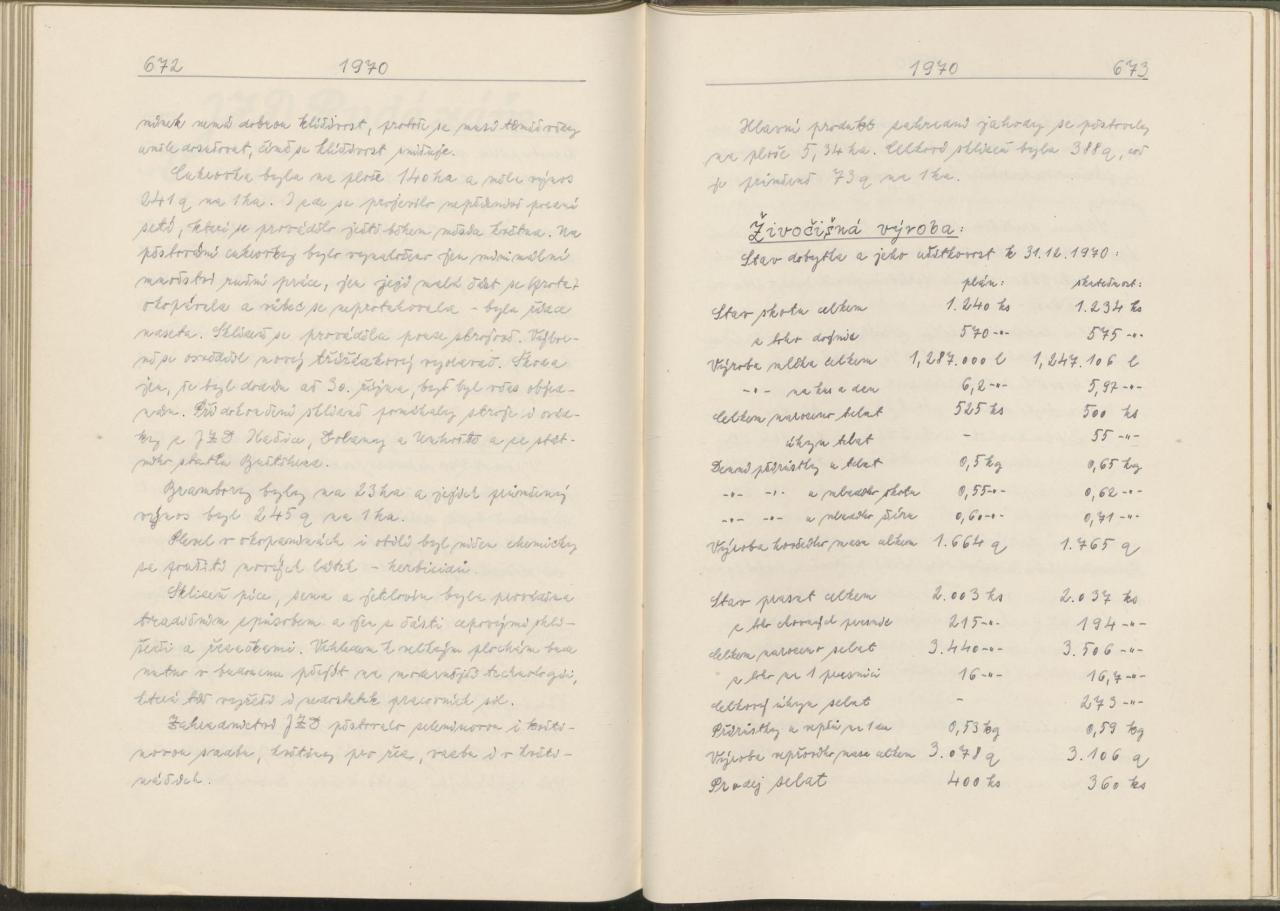 672 1970
mínek nemá dobrou klíčivost, protože se musí téměř vždy
uměle dosoušet, čímž se klíčivost snižuje.
Cukrovka byla na ploše 140 ha a měla výnos
241 q na 1 ha. I zde se projevilo nepříznivě pozdní
setí, které se provádělo ještě během měsíce května. Na
pěstování cukrovky bylo vynaloženo jen minimální
množství ruční práce, jen její malá část se
okopávala a vůbec se nepřetrhávala - byla řídce
naseta. Sklizeň se prováděla pouze strojově. Výbor-
ně se osvědčil nový třířádkový vyorávač. Škoda
jen, že byl dodán až 30. října, byť byl včas objed-
nán. Při dokončení sklizně pomáhaly stroje i osád-
ky z JZD Hostivice, Dobrovíz a Unhoště a ze stát-
ního statku Buštěhrad.
Brambory byly na 23 ha a jejich průměrný
výnos byl 245 q na 1 ha.
Plevel v okopaninách i obilí byl ničen chemicky
za použití nových látek - herbicidů.
Sklizeň píce, sena a jetelovin byla prováděna
tradičním způsobem a jen z části cepovými skli-
zeči a řezačkami. Vzhledem k velkým plochám bude
nutno v budoucnu přejít na modernější technologii,
která též vyřeší i nedostatek pracovních sil.
Zahradnictví JZD pěstovalo zeleninovou i květi-
novou sadbu, květiny pro řez, vazbu i v květi-
náčích.
1970 673
Hlavní produkt zahradní jahody se pěstovaly
na ploše 5,34 ha. Celková sklizeň byla 388 q, což
je průměrně 73 q na 1 ha.
Živočišná výroba:
Stav dobytka a jeho užitkovost k 31.12.1970:
plán: skutečnost:
Stav skotu celkem 1.240 ks 1.234 ks
z toho dojnic 570 -"- 575 -"-
Výroba mléka celkem 1,287.000 l 1,247.106 l
-"- na kus a den 6,2 -"- 5,97 -"-
Celkem narozeno telat 525 ks 500 ks
úhyn telat - 55 -"-
Denní přírůstky u telat 0,5 kg 0,65 kg
-"- -"- u mladého skotu 0,55 -"- 0,62 -"-
-"- -"- u mladého žíru 0,60 -"- 0,71 -"-
Výroba hovězího masa celkem 1.664 q 1.765 q
Stav prasat celkem 2.003 ks 2.037 ks
z toho chovných prasnic 215 -"- 194 -"-
Celkem narozeno selat 3.440 -"- 3.506 -"-
z toho na 1 prasnici 16 -"- 16,7 -"-
Celkový úhyn selat - 273 -"-
Přírůstky u vepřů na den 0,53 kg 0,59 kg
Výroba vepřového masa celkem 3.078 q 3.106 q
Prodej selat 400 ks 360 ks